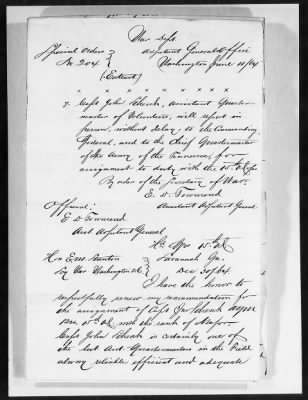 War Dept
Special Orders } Adjutant General's Office
No 204 } Washington June 11/64
(Extract)
x x x x x x x x x x
7. Capt John Schenk, Assistant Quarter-
master of Volunteers, will report in
person, without delay, to the Commanding
General, and to the Chief Quartermaster
of the Army of the Tennessee, for
assignment to duty with the 15th A.C.
By order of the Secretary of War.
E. D. Townsend
Official: Assistant Adjutant General
E D Townsend
Asst Adjutant General
Hd Qrs 15th A.C.
Hon E.M. Stanton } Savannah Ga.
Secy War Washington D.C. } Dec 30/64
I have the honor to
respectfully renew my recommendation for
the assignment of Capt Jno Schenk
15th A.C. with the rank of Major
Capt John Schenk is certainly one of
the best Asst Quartermasters in the Field
always reliable efficient and adequate